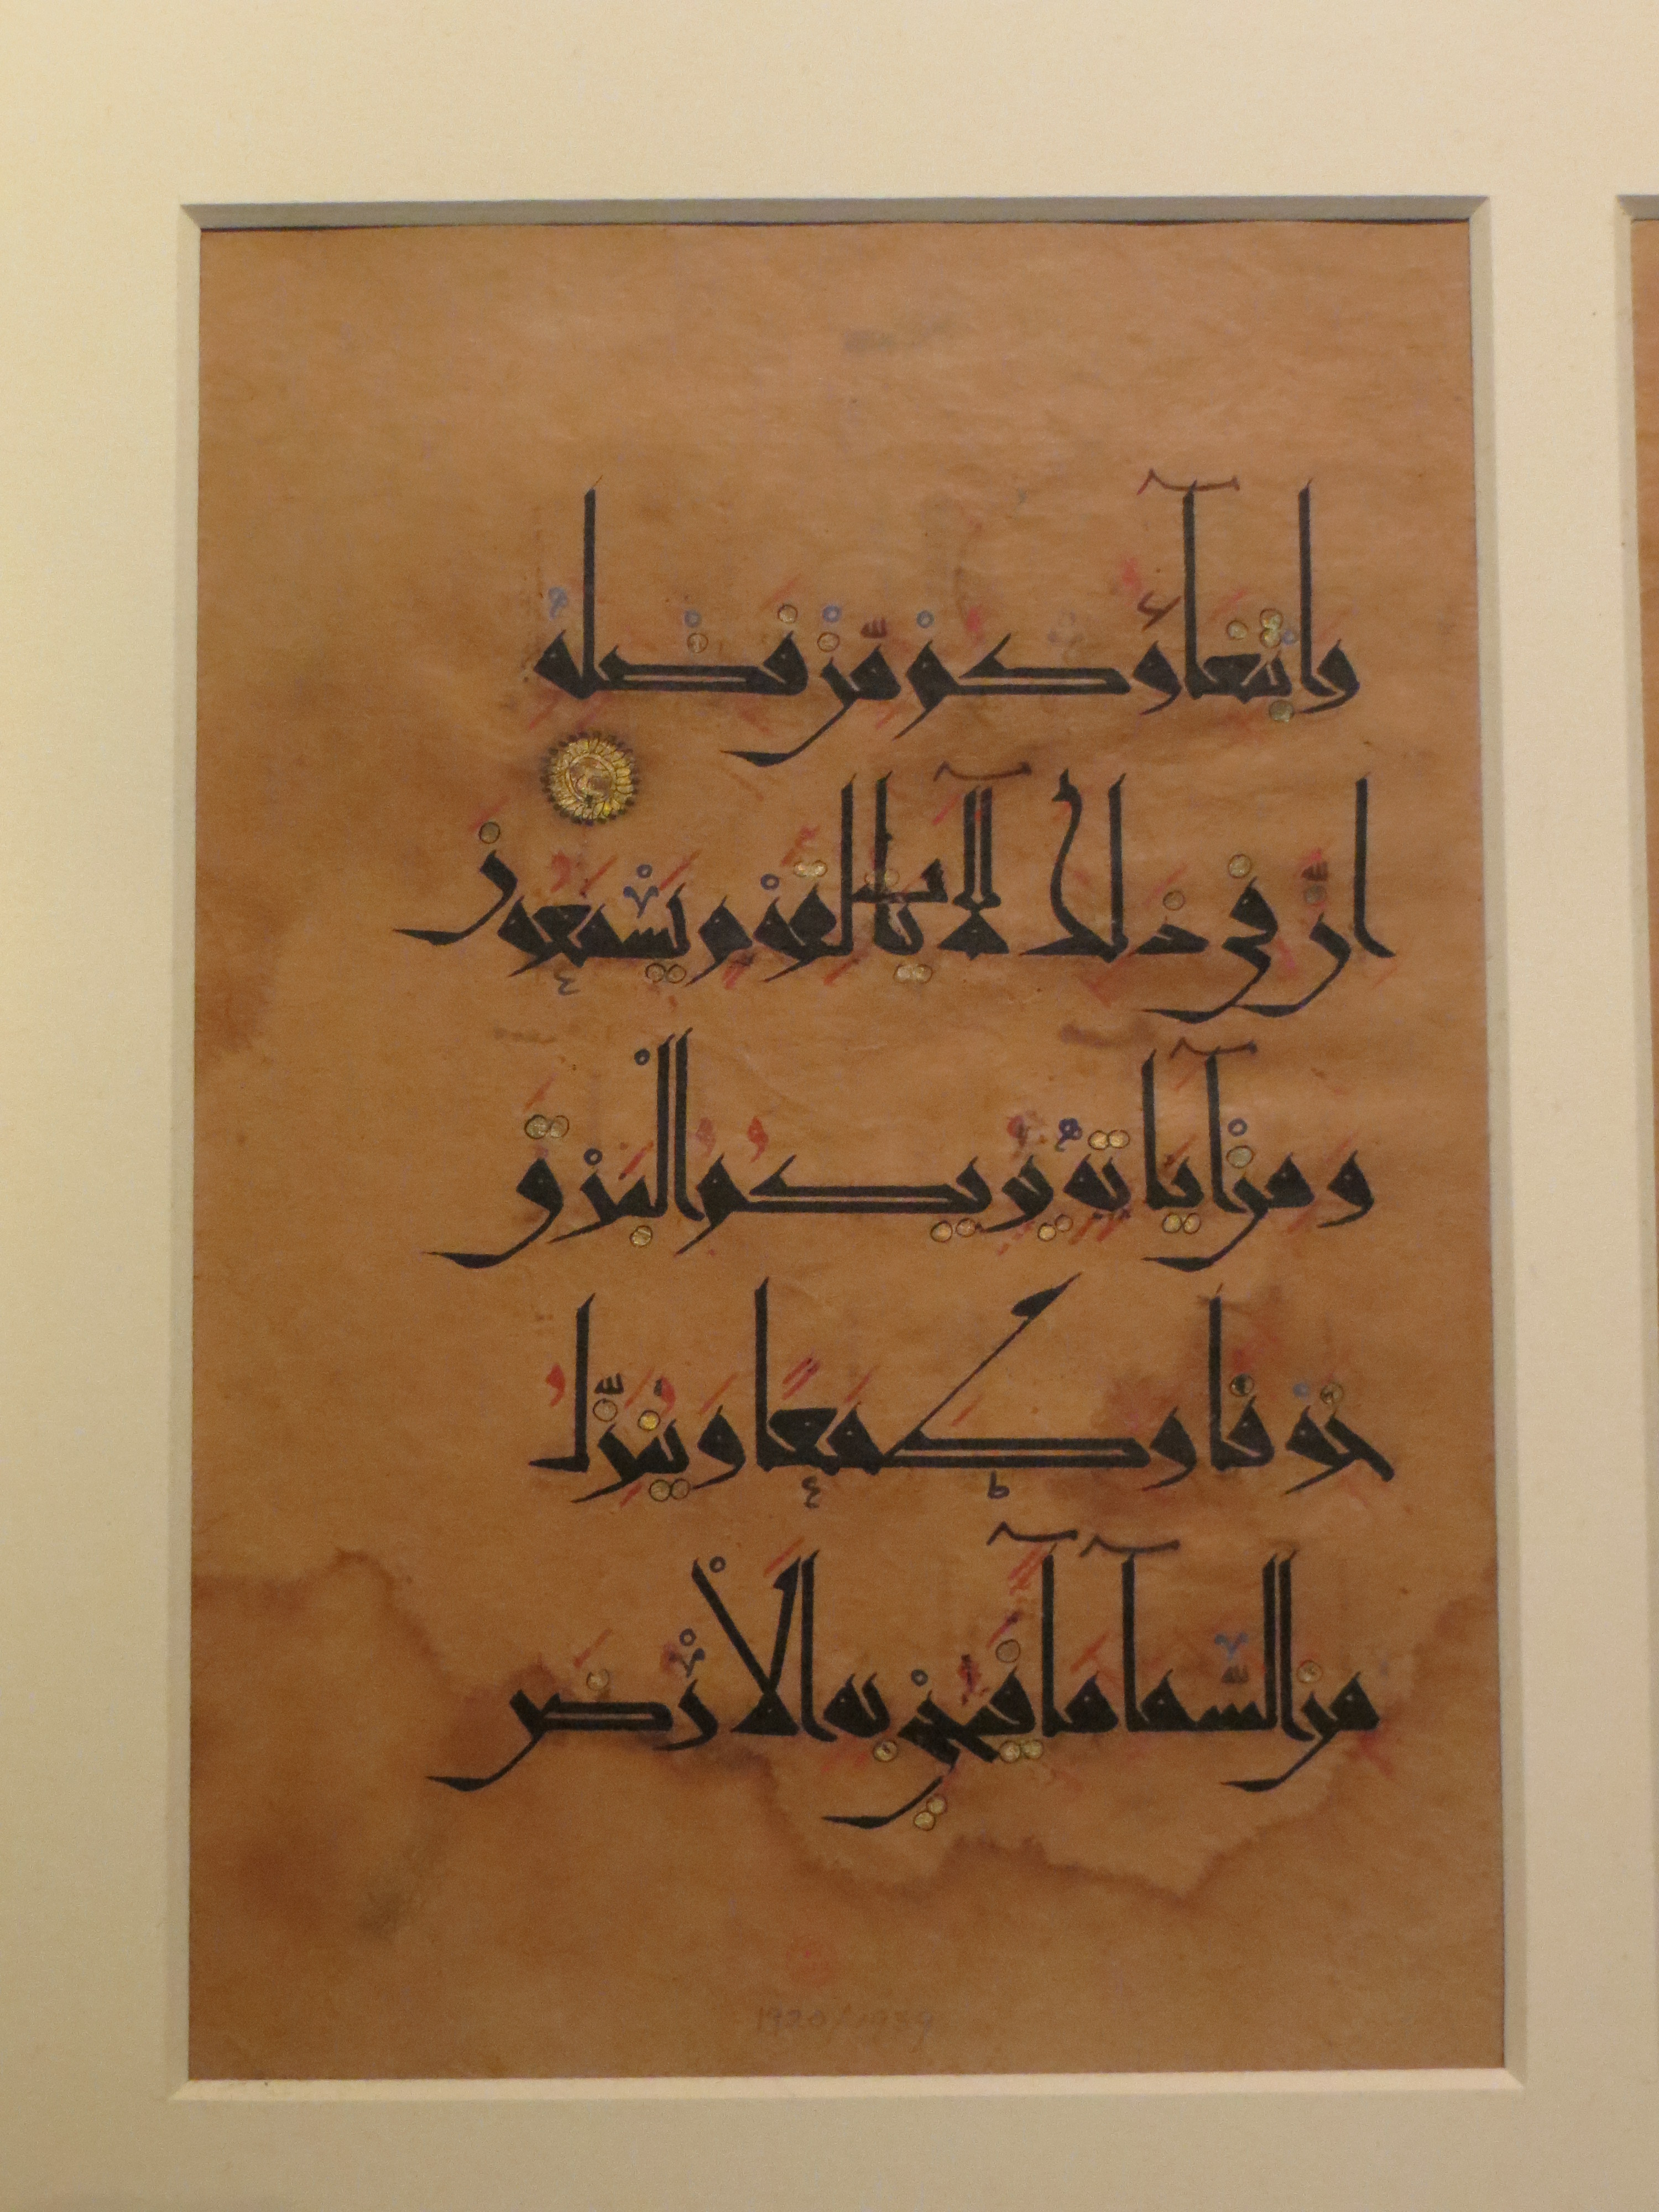 وَابْتِغَآؤُكُمْ مِّنْ فَضْلِهٖ
اِنَّ فِى ذٰلِكَ لَآيَاتٍ لِّقَوْمٍ يَسْمَعُونَ
وَمِنْ آيَاتِهٖ يُرِيكُمُ الْبَرْقَ
خَوْفًا وَطَمَعًا وَيُنَزِّلُ
مِنَ السَّمَآءِ مَآءً فَيُحْيِى بِهِ الْاَرْضَ